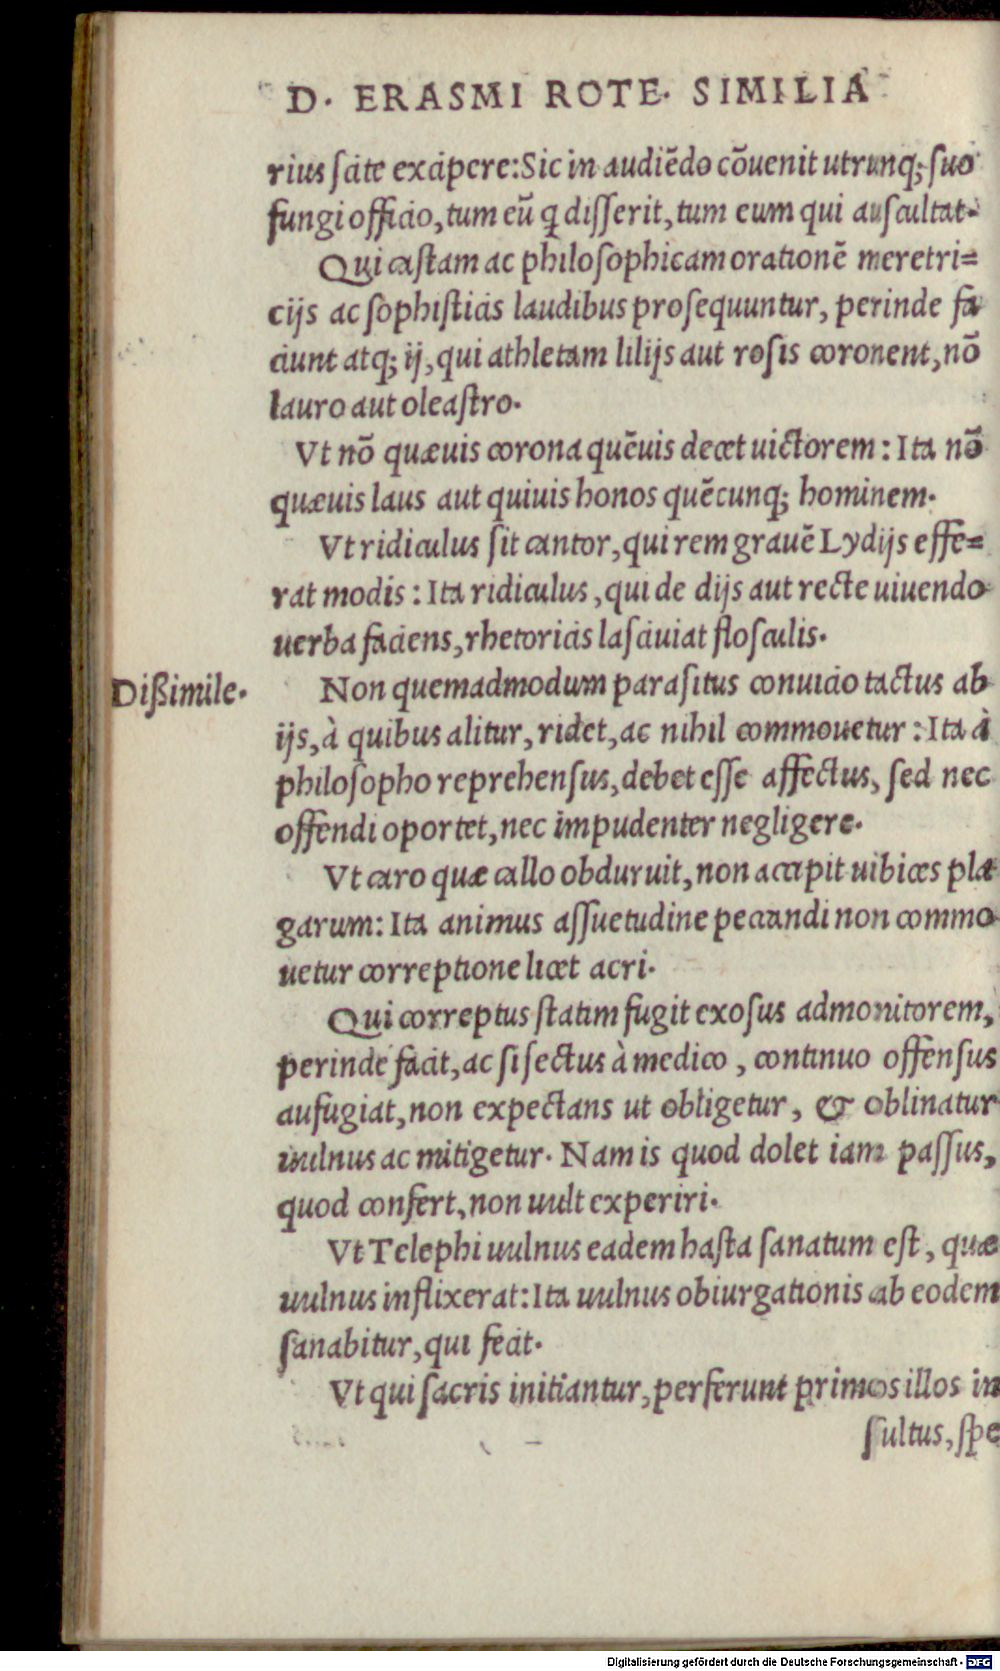 D. ERASMI ROTE. SIMILIA
rius scite excipere: Sic in audiẽdo cõuenit utrunq; suo
fungi officio, tum eũ q̃ disserit, tum eum qui auscultat.
Qui castam ac philosophicam orationẽ meretri=
cijs ac sophisticis laudibus prosequuntur, perinde fa
ciunt atq; ij, qui athletam lilijs aut rosis coronent, nõ
lauro aut oleastro.
Vt nõ quæuis corona quẽuis decet uictorem: Ita nõ
quæuis laus aut quiuis honos quẽcunq; hominem.
Vt ridiculus sit cantor, qui rem grauẽ Lydijs effe=
rat modis: Ita ridiculus, qui de dijs aut recte uiuendo
uerba faciens, rhetoricis lasciuiat flosculis.
Dißimile.
Non quemadmodum parasitus conuicio tactus ab
ijs, à quibus alitur, ridet, ac nihil commouetur: Ita à
philosopho reprehensus, debet esse affectus, sed nec
offendi oportet, nec impudenter negligere.
Vt caro quæ callo obduruit, non accipit uibices pla
garum: Ita animus assuetudine peccandi non commo
uetur correptione licet acri.
Qui correptus statim fugit exosus admonitorem,
perinde facit, ac si sectus à medico, continuo offensus
aufugiat, non expectans ut obligetur, & oblinatur
uulnus ac mitigetur. Nam is quod dolet iam passus,
quod confert, non uult experiri.
Vt Telephi uulnus eadem hasta sanatum est, quæ
uulnus inflixerat: Ita uulnus obiurgationis ab eodem
sanabitur, qui fecit.
Vt qui sacris initiantur, perferunt primos illos in
sultus, spe
Digitalisierung gefördert durch die Deutsche Forschungsgemeinschaft - DFG